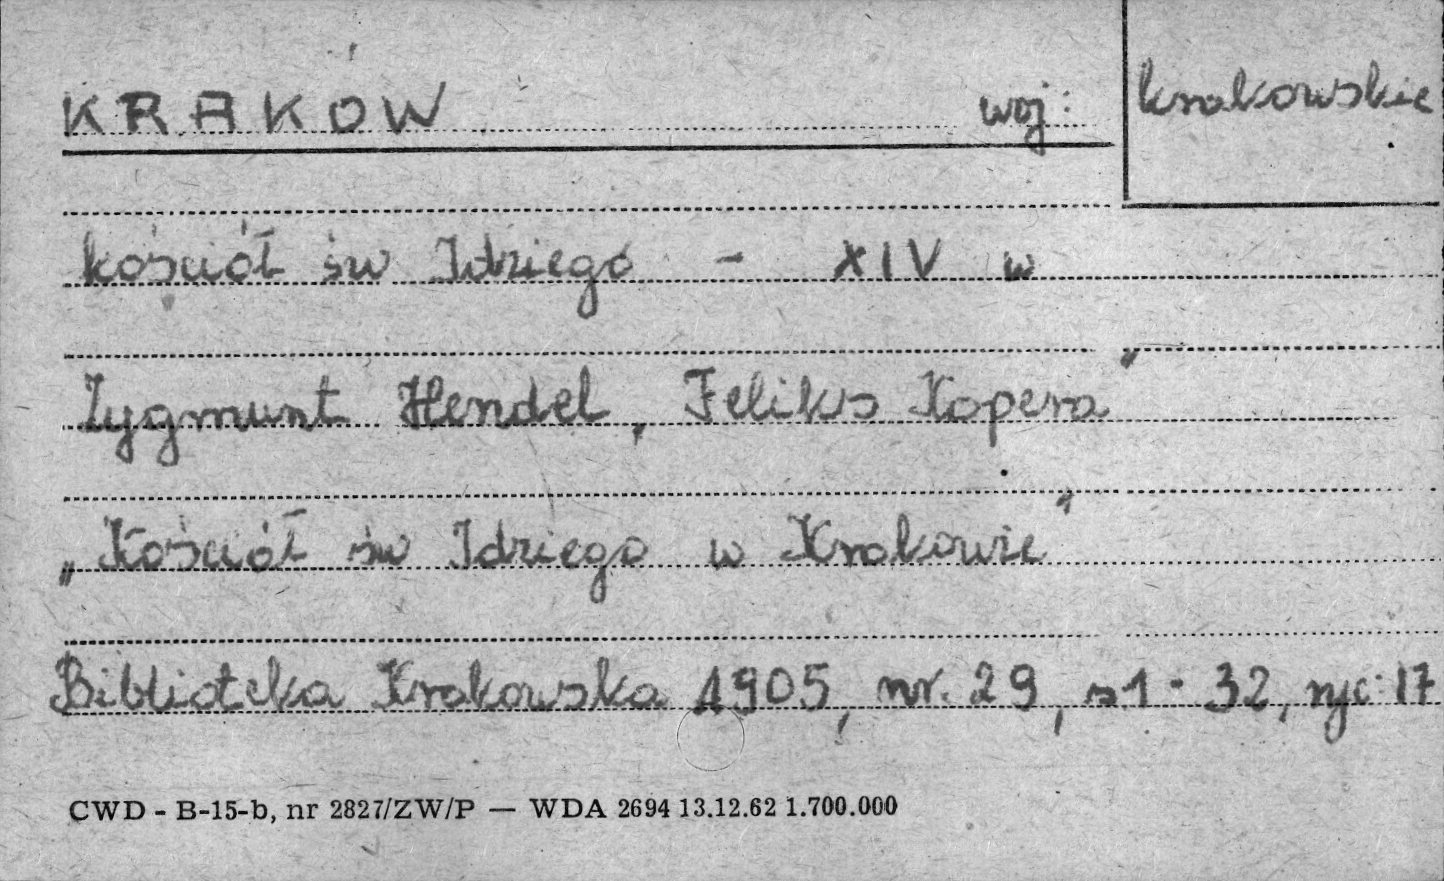 KRAKÓW woj: krakowskie
kościół św Idziego - XIV w
Zygmunt Hendel, Feliks Kopera"
„Kościół św Idziego w Krakowie"
Biblioteka Krakowska 1905, nr. 29, s1 - 32, ryc: 17
CWD - B-15-b, nr 2827/ZW/P — WDA 2694 13.12.62 1.700.000